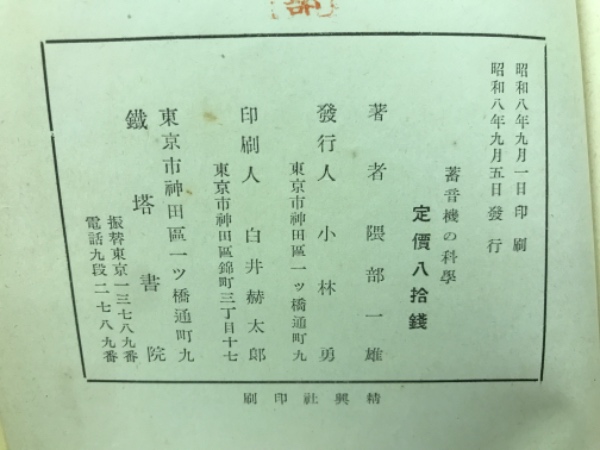 昭和八年九月一日印刷
昭和八年九月五日發行
蓄音機の科學
定價八拾錢
著者 隈部一雄
東京市神田區一ツ橋通町九
發行人 小林勇
東京市神田區錦町三丁目十七
印刷人 白井赫太郎
東京市神田區一ツ橋通町九
鐵塔書院
振替東京一三七八九番
電話九段二七八九番
精興社印刷